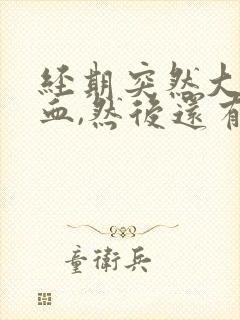 經期突然大
血,然後還有
童衛兵